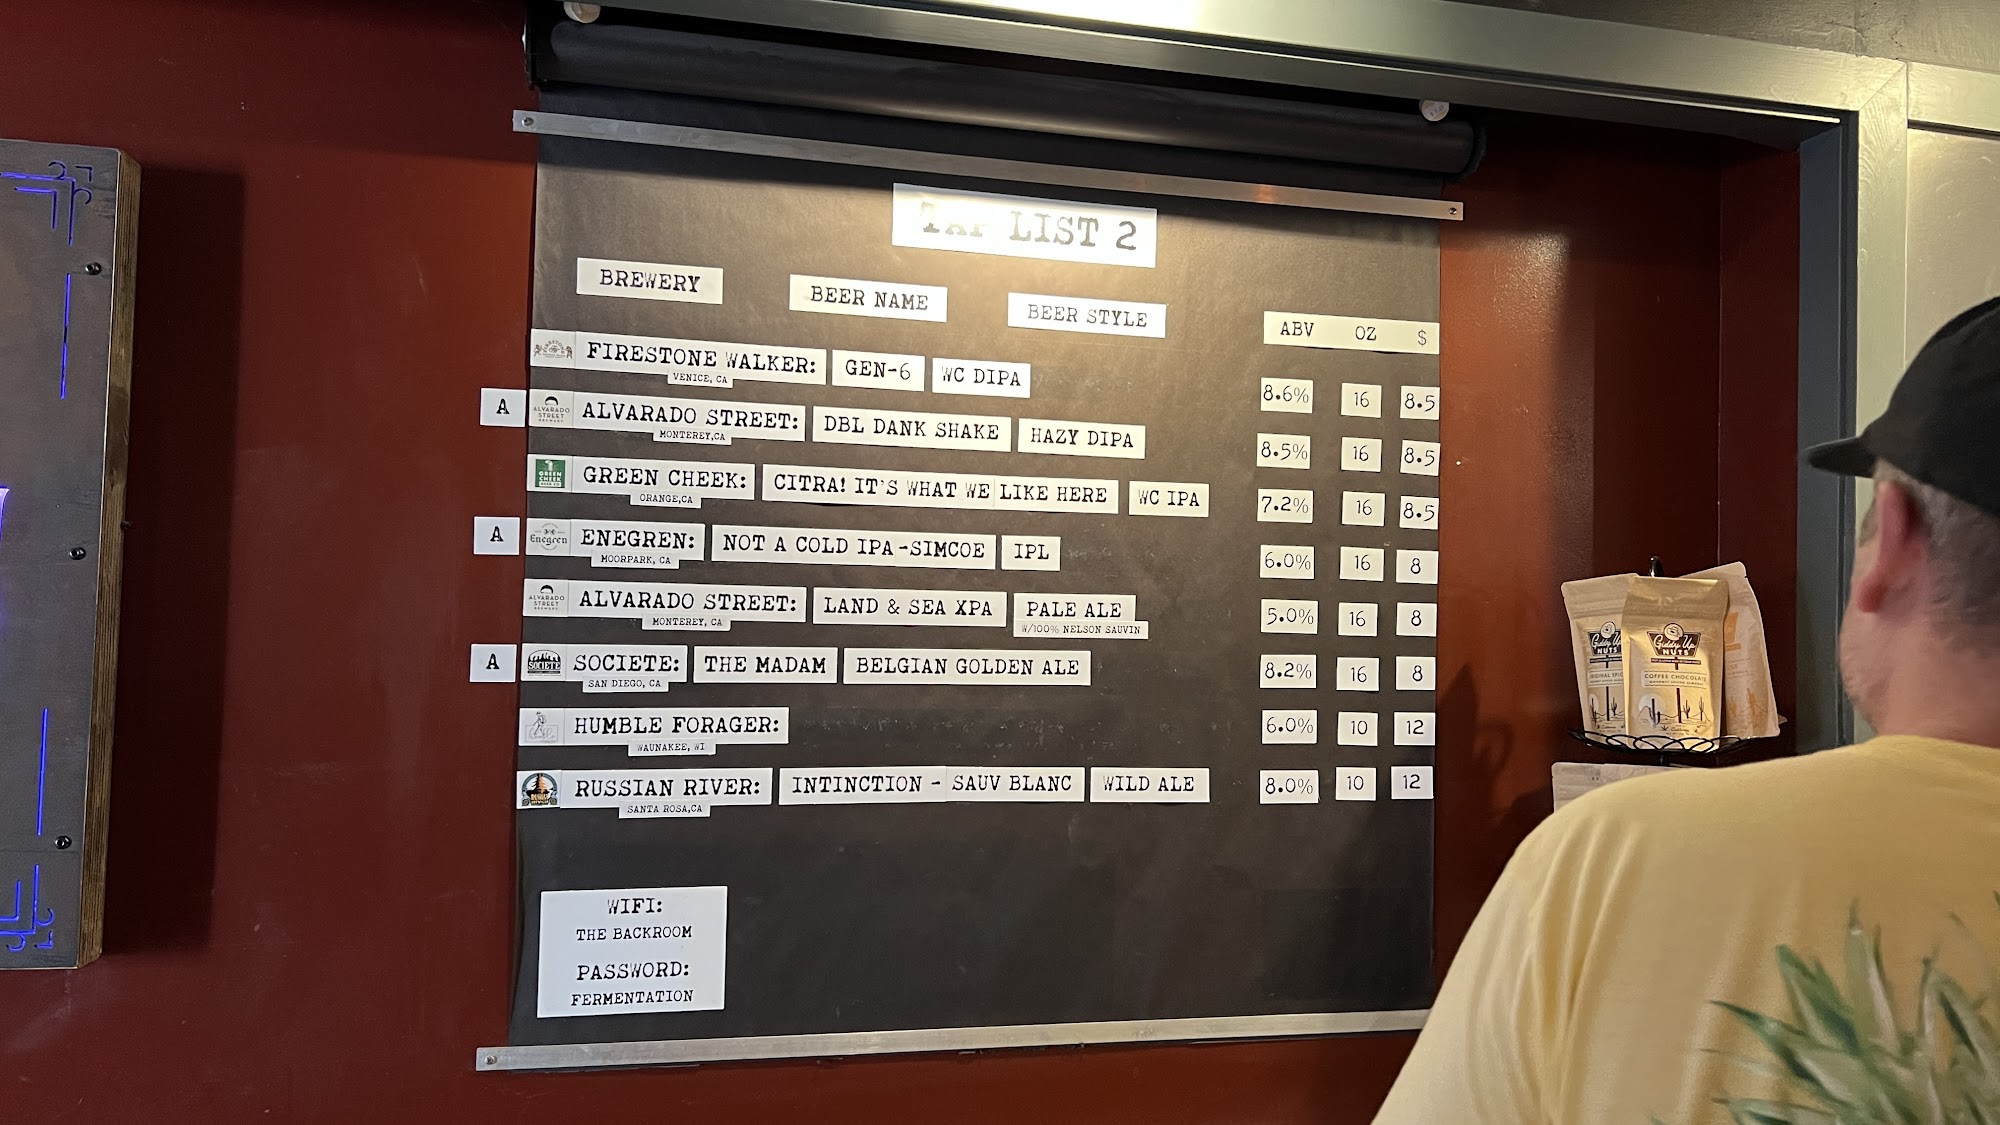 TAP LIST 2
BREWERY BEER NAME BEER STYLE ABV OZ $
FIRESTONE WALKER: GEN-6 WC DIPA 8.6% 16 8.5
VENICE, CA
A ALVARADO STREET BREWERY ALVARADO STREET: DBL DANK SHAKE HAZY DIPA 8.5% 16 8.5
MONTEREY,CA
GREEN CHEEK GREEN CHEEK: CITRA! IT'S WHAT WE LIKE HERE WC IPA 7.2% 16 8.5
ORANGE,CA
A Enegren ENEGREN: NOT A COLD IPA-SIMCOE IPL 6.0% 16 8
MOORPARK, CA
ALVARADO STREET BREWERY ALVARADO STREET: LAND & SEA XPA PALE ALE 5.0% 16 8
MONTEREY, CA W/100% NELSON SAUVIN
A SOCIETE SOCIETE: THE MADAM BELGIAN GOLDEN ALE 8.2% 16 8
SAN DIEGO, CA
HUMBLE FORAGER: 6.0% 10 12
WAUNAKEE, WI
RUSSIAN RIVER: INTINCTION - SAUV BLANC WILD ALE 8.0% 10 12
SANTA ROSA,CA
WIFI:
THE BACKROOM
PASSWORD:
FERMENTATION
Giddy Up
NUTS
COFFEE CHOCOLATE
Giddy Up
NUTS